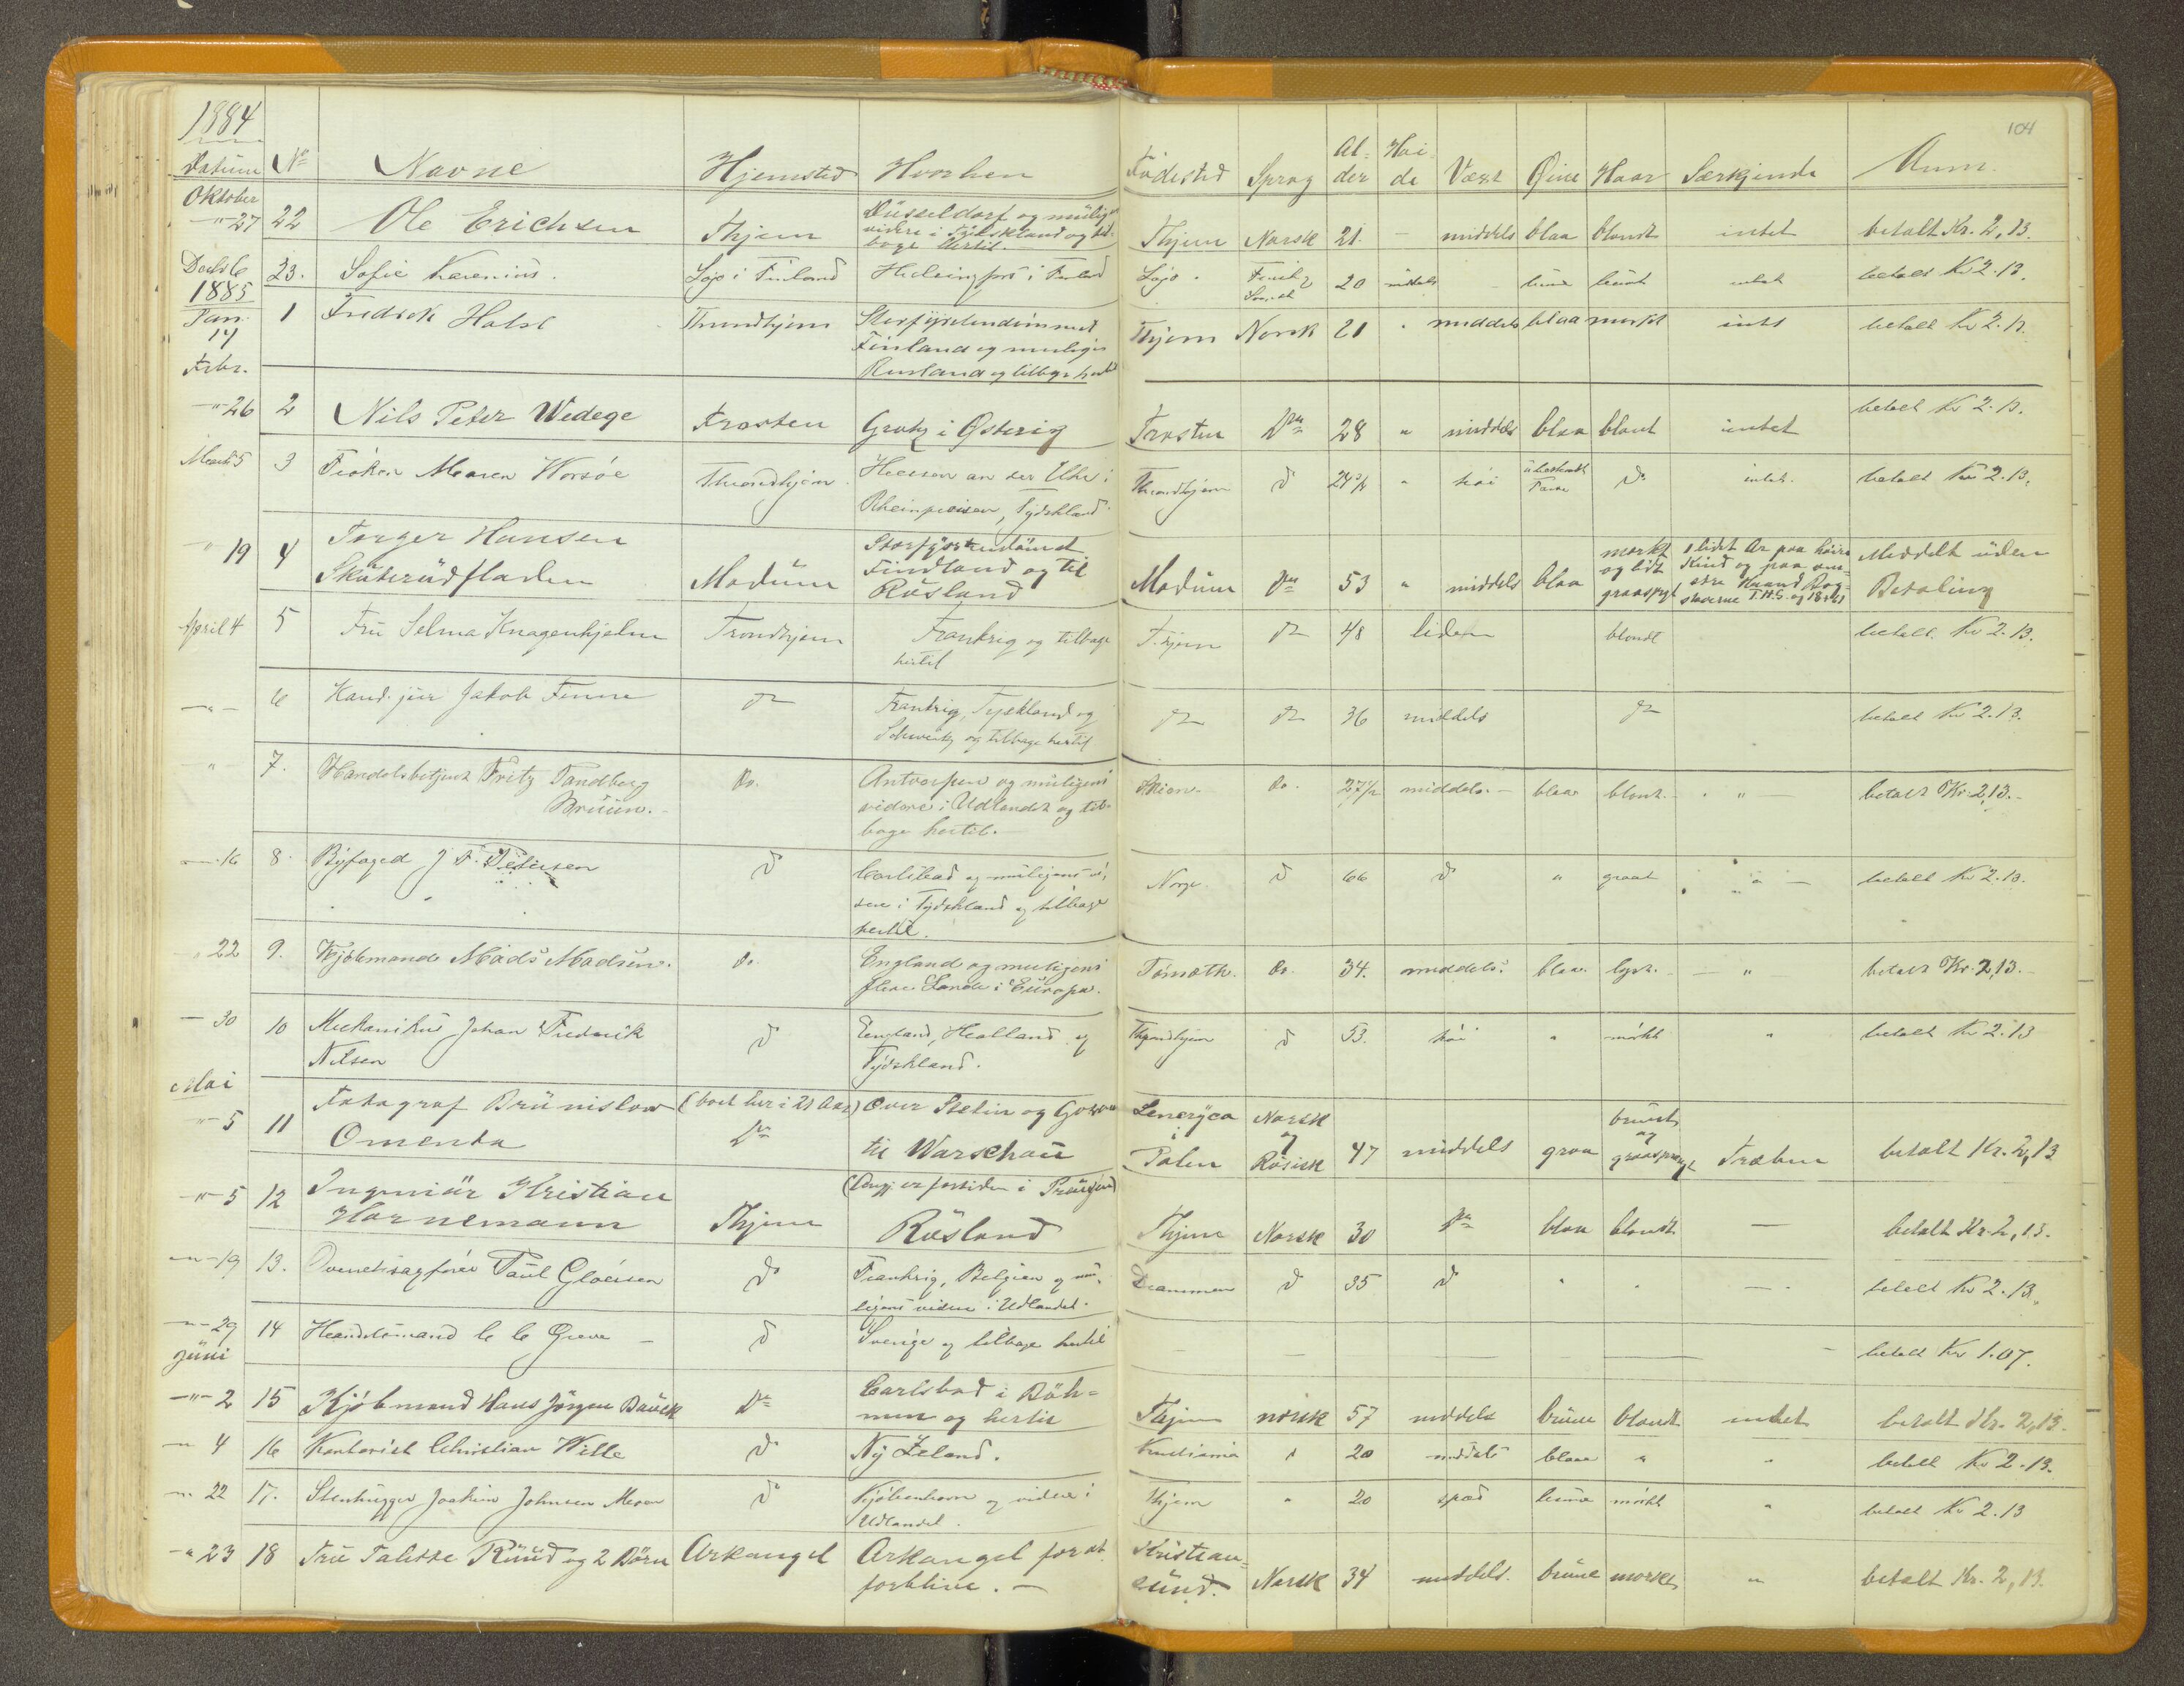 1884
104
Datum No Navne Hjemsted Hvorhen Födested Sprog Alder Höide Væxt Øine Haar Særkjende Anm.
Oktober
—"— 27 22 Ole Erichsen Thjem Düsseldorf og mülig
videre i Tydskland og til-
bage hertil. Thjem Norsk 21. — middels blaa blondt intet betalt Kr. 2,13.
Decbr 6 23. Sofie Karenius. Lojo i Finland Helsingfors i Finland Lojo. Finsk &
Svensk 20 middels brune brünt intet betalt Kr 2.13.
1885
Jan. 17 1 Fredrik Holst Trondhjem Storfyrstendömmet
Finland og muligens
Rusland og tilbage hertil Thjem Norsk 21 " middels blaa mørkt intet betalt Kr 2.13.
Febr.
—"— 26 2 Nils Peter Wedege Frosten Gratz i Østerig Frosten Do 28 " middels blaa blont intet betalt Kr 2.13.
Marts 5 3 Frøken Maren Worsöe Throndhjem. Heesen an der Elbe i
Rheinpreisen, Tydskland. Throndhjem do 24 1/2 " høi übestemt
Farve do intet. betalt Kr 2.13.
" 19 4 Torger Hansen
Skuterüdfladen Modüm Storfyrstendömet
Findland og til
Rüsland Modüm Do 53 " middels blaa mørkt
og lidt
graaspr 1 lidet Ar paa høire
Kind og paa ven-
stre Haand Bog-
staverne T.H.S. og 18 Meddelt üden
Betaling
April 4 5 Frü Selma Knagenhjelm Trondhjem Frankrig og tilbage
hertil T.hjem do 48 liden blondt betalt Kr 2.13.
—"— 6 Kand. jür Jakob Finne do Frankrig, Tyskland og
Schweitz og tilbage hertil do do 36 middels do betalt Kr 2.13.
" 7. Handelsbetjent Fritz Tandberg
Brüün. do. Antverpen og müligens
videre i Udlandet og til-
bage hertil. Skien do. 27 1/2 middels. blaa blont. " betalt Kr 2,13.
— 16 8. Byfoged J F. Petersen do Carlsbad og müligens vi-
dere i Tydskland og tilbage
hertil. Norge. do 66 do " graat " betalt Kr 2.13.
" 22 9. Kjöbmand Mads Madsen. do. England og muligens
flere Lande i Europa. do. 34. middels. blaa lyst. — " betalt Kr. 2,13.
— 30 10 Mekanikus Johan Frederik
Nilsen do England, Holland og
Tydskland. Throndhjem do 53. høi " mörkt " betalt Kr 2.13
Mai
—"— 5 11 Fotograf Brünislow
Omenta (boet her i 21 Aar)
Do Over Stetin og
til Warschaü i
Polen Norsk
og
Rüsisk 47 middels graa brünt
og
graasprengt Træben betalt Kr. 2,13
—"— 5 12 Ingeniör Kristian
Hornemann Thjem
Rüsland Thjem Norsk 30 Do blaa blondt — betalt Kr. 2,13.
—"— 19 13. Overretssagförer Paul Gløersen do Frankrig, Belgien og mü-
ligens videre i Udlandet. Drammen do 35 do " " — betalt Kr 2.13.
—"— 29 14 Handelsmand C C Greve — do Sverige og tilbage hertil — — — — — — betalt Kr 1.07.
Jüni
—"— 2 15 Kjöbmand Hans Jörgen Baück Do Carlsbad i Böh-
men og hertil Thjem norsk 57 middels brüne blondt intet betalt Kr. 2,13.
—" 4 16 Kontorist Christian Wille do Ny Zeland. Kristiania " 20 middels blaa " " betalt Kr 2.13.
—" 22 17. Stenhugger Joakim Johnsen Moen do Kjöbenhavn og videre i
Udlandet. Thjem " 20 spæd brune mörkt " betalt Kr 2.13
—" 23 18 Frü Rüüd og 2 Börn Arkangel Arkangel for at
forblive. — Kristian-
sünd. Norsk 34 middels. brüne mørkt " betalt Kr. 2,13.